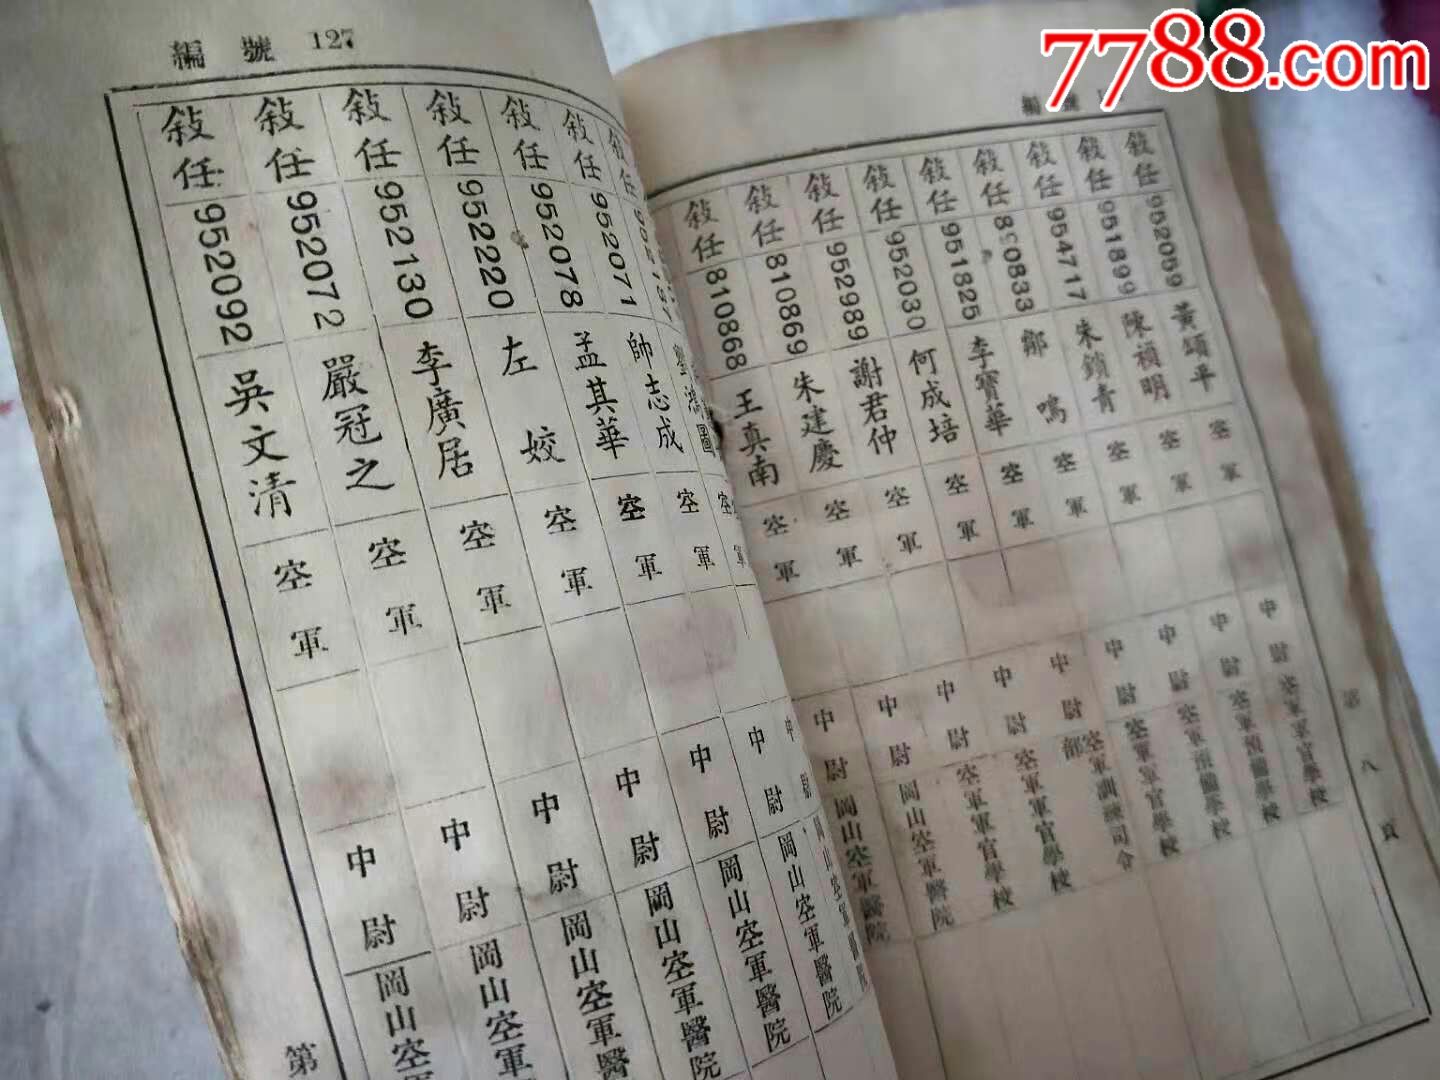 7788.com
編號
敍任 952059 黃頌平 空軍 中尉 空軍軍官學校
敍任 951899 陳禎明 空軍 中尉 空軍預備學校
敍任 954717 朱鎖青 空軍 中尉 空軍預備學校
敍任 鄒鳴 空軍 中尉 空軍軍官學校
敍任 951825 李寶華 空軍 中尉 空軍訓練司令部
敍任 952030 何成培 空軍 中尉 空軍軍官學校
敍任 952989 謝君仲 空軍 中尉 空軍軍官學校
敍任 810869 朱建慶 空軍 中尉 岡山空軍醫院
敍任 810868 王真南 空軍 中尉 岡山空軍醫院
第八頁
編號 127
敍任 952071 帥志成 空軍 中尉 岡山空軍醫院
敍任 952078 孟其華 空軍 中尉 岡山空軍醫院
敍任 952220 左姣 空軍 中尉 岡山空軍醫
敍任 952130 李廣居 空軍 中尉 岡山空軍醫
敍任 952072 嚴冠之 空軍 中尉 岡山空軍
敍任 952092 吳文清 空軍 中尉 岡山空
第